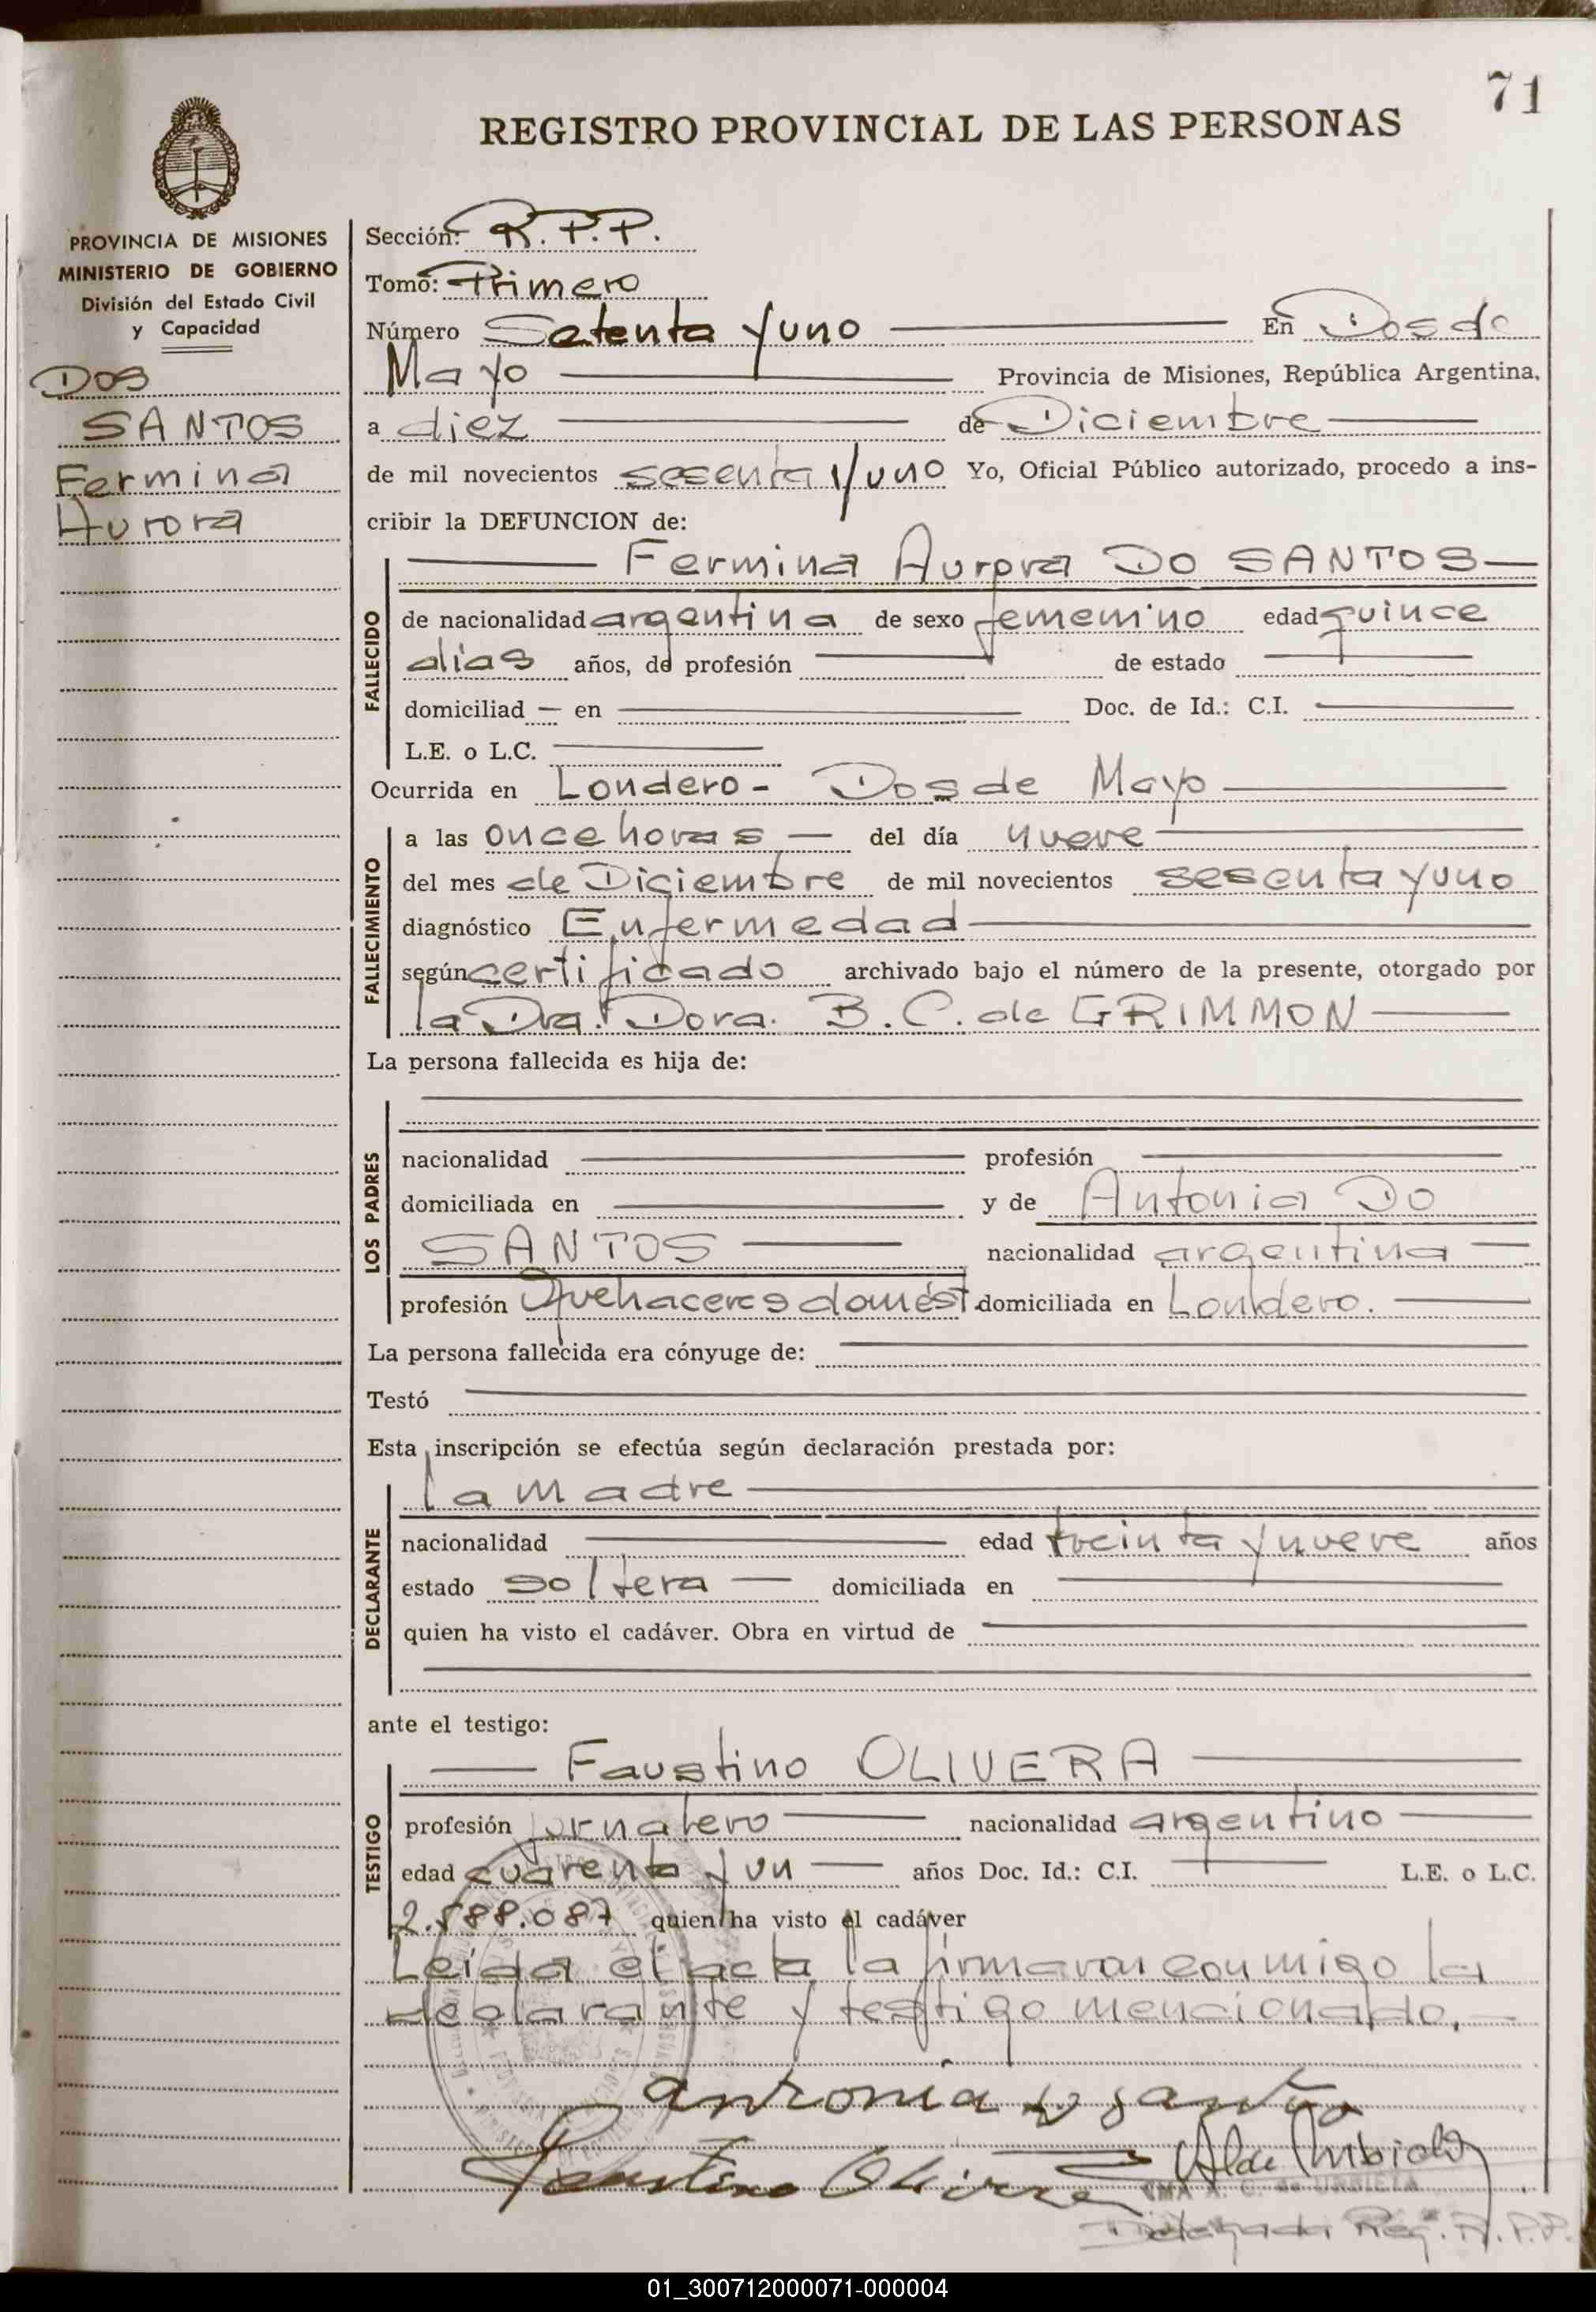 71
REGISTRO PROVINCIAL DE LAS PERSONAS
PROVINCIA DE MISIONES
MINISTERIO DE GOBIERNO
División del Estado Civil
y Capacidad
DOS
SANTOS
Fermina
Aurora
Sección: R.P.P.
Tomo: Primero
Número Setenta y uno En Dos de
Mayo Provincia de Misiones, República Argentina,
a diez de Diciembre
de mil novecientos sesenta y uno Yo, Oficial Público autorizado, procedo a ins-
cribir la DEFUNCION de:
Fermina Aurora DO SANTOS
FALLECIDO
de nacionalidad argentina de sexo femenino edad quince
dias años, de profesión de estado
domiciliad en Doc. de Id.: C.I.
L.E. o L.C.
Ocurrida en Londero - Dos de Mayo
FALLECIMIENTO
a las once horas del día nueve
del mes de Diciembre de mil novecientos sesenta y uno
diagnóstico Enfermedad
según certificado archivado bajo el número de la presente, otorgado por
la Dra. Dora. B. C. de GRIMMON
La persona fallecida es hija de:
LOS PADRES
nacionalidad profesión
domiciliada en y de Antonia DO
SANTOS nacionalidad argentina
profesión Quehaceres domést. domiciliada en Londero.
La persona fallecida era cónyuge de:
Testó
Esta inscripción se efectúa según declaración prestada por:
la madre
DECLARANTE
nacionalidad edad treinta y nueve años
estado soltera domiciliada en
quien ha visto el cadáver. Obra en virtud de
ante el testigo:
Faustino OLIVERA
TESTIGO
profesión jornalero nacionalidad argentino
edad cuarenta y un años Doc. Id.: C.I. L.E. o L.C.
2.588.087 quien ha visto el cadáver
Leída el acta la firmaron conmigo la
declarante y testigo mencionado.
antonia do santo
Faustino Olivera
de URBIETA
Delegada Reg. R.P.P.
01_300712000071-000004